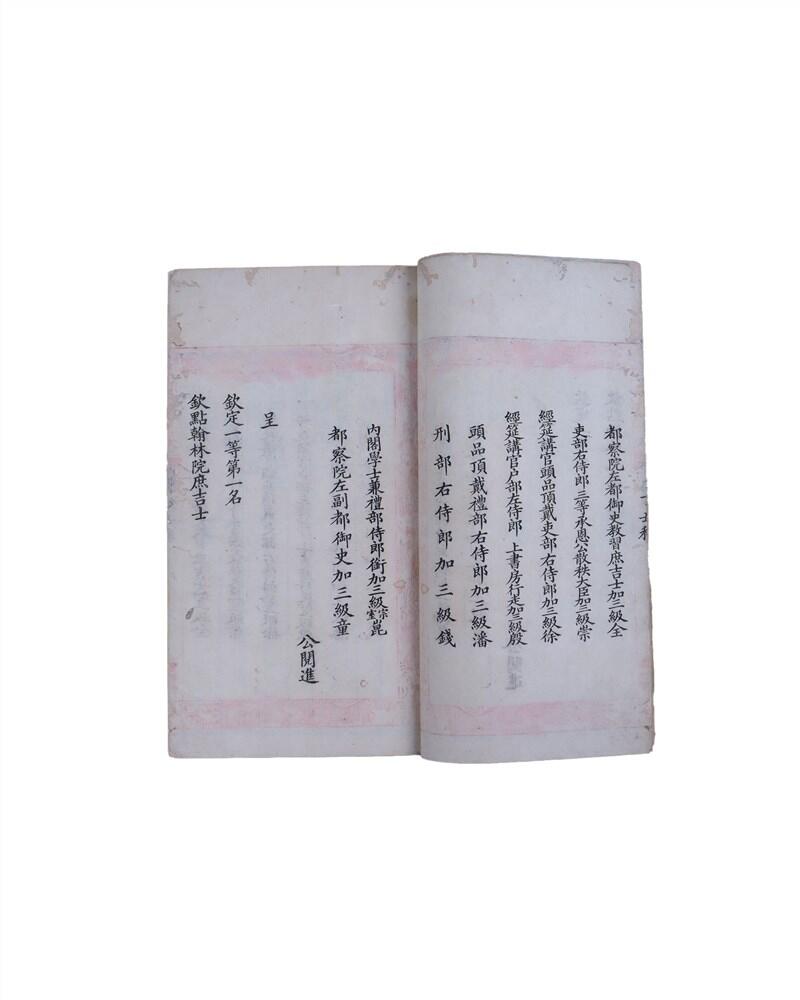 都察院左都御史教習庶吉士加三級全
吏部右侍郎三等承恩公散秩大臣加三級崇
經筵講官頭品頂戴吏部右侍郎加三級徐
經筵講官户部左侍郎 上書房行走加三級殷
頭品頂戴禮部右侍郎加三級潘
刑部右侍郎加三級錢
內閣學士兼禮部侍郎銜加三級宗室崑
都察院左副都御史加三級童
公閱進
呈
欽定一等第一名
欽點翰林院庶吉士